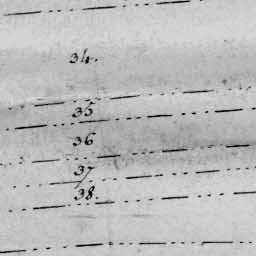 34.
35
36
37
38.